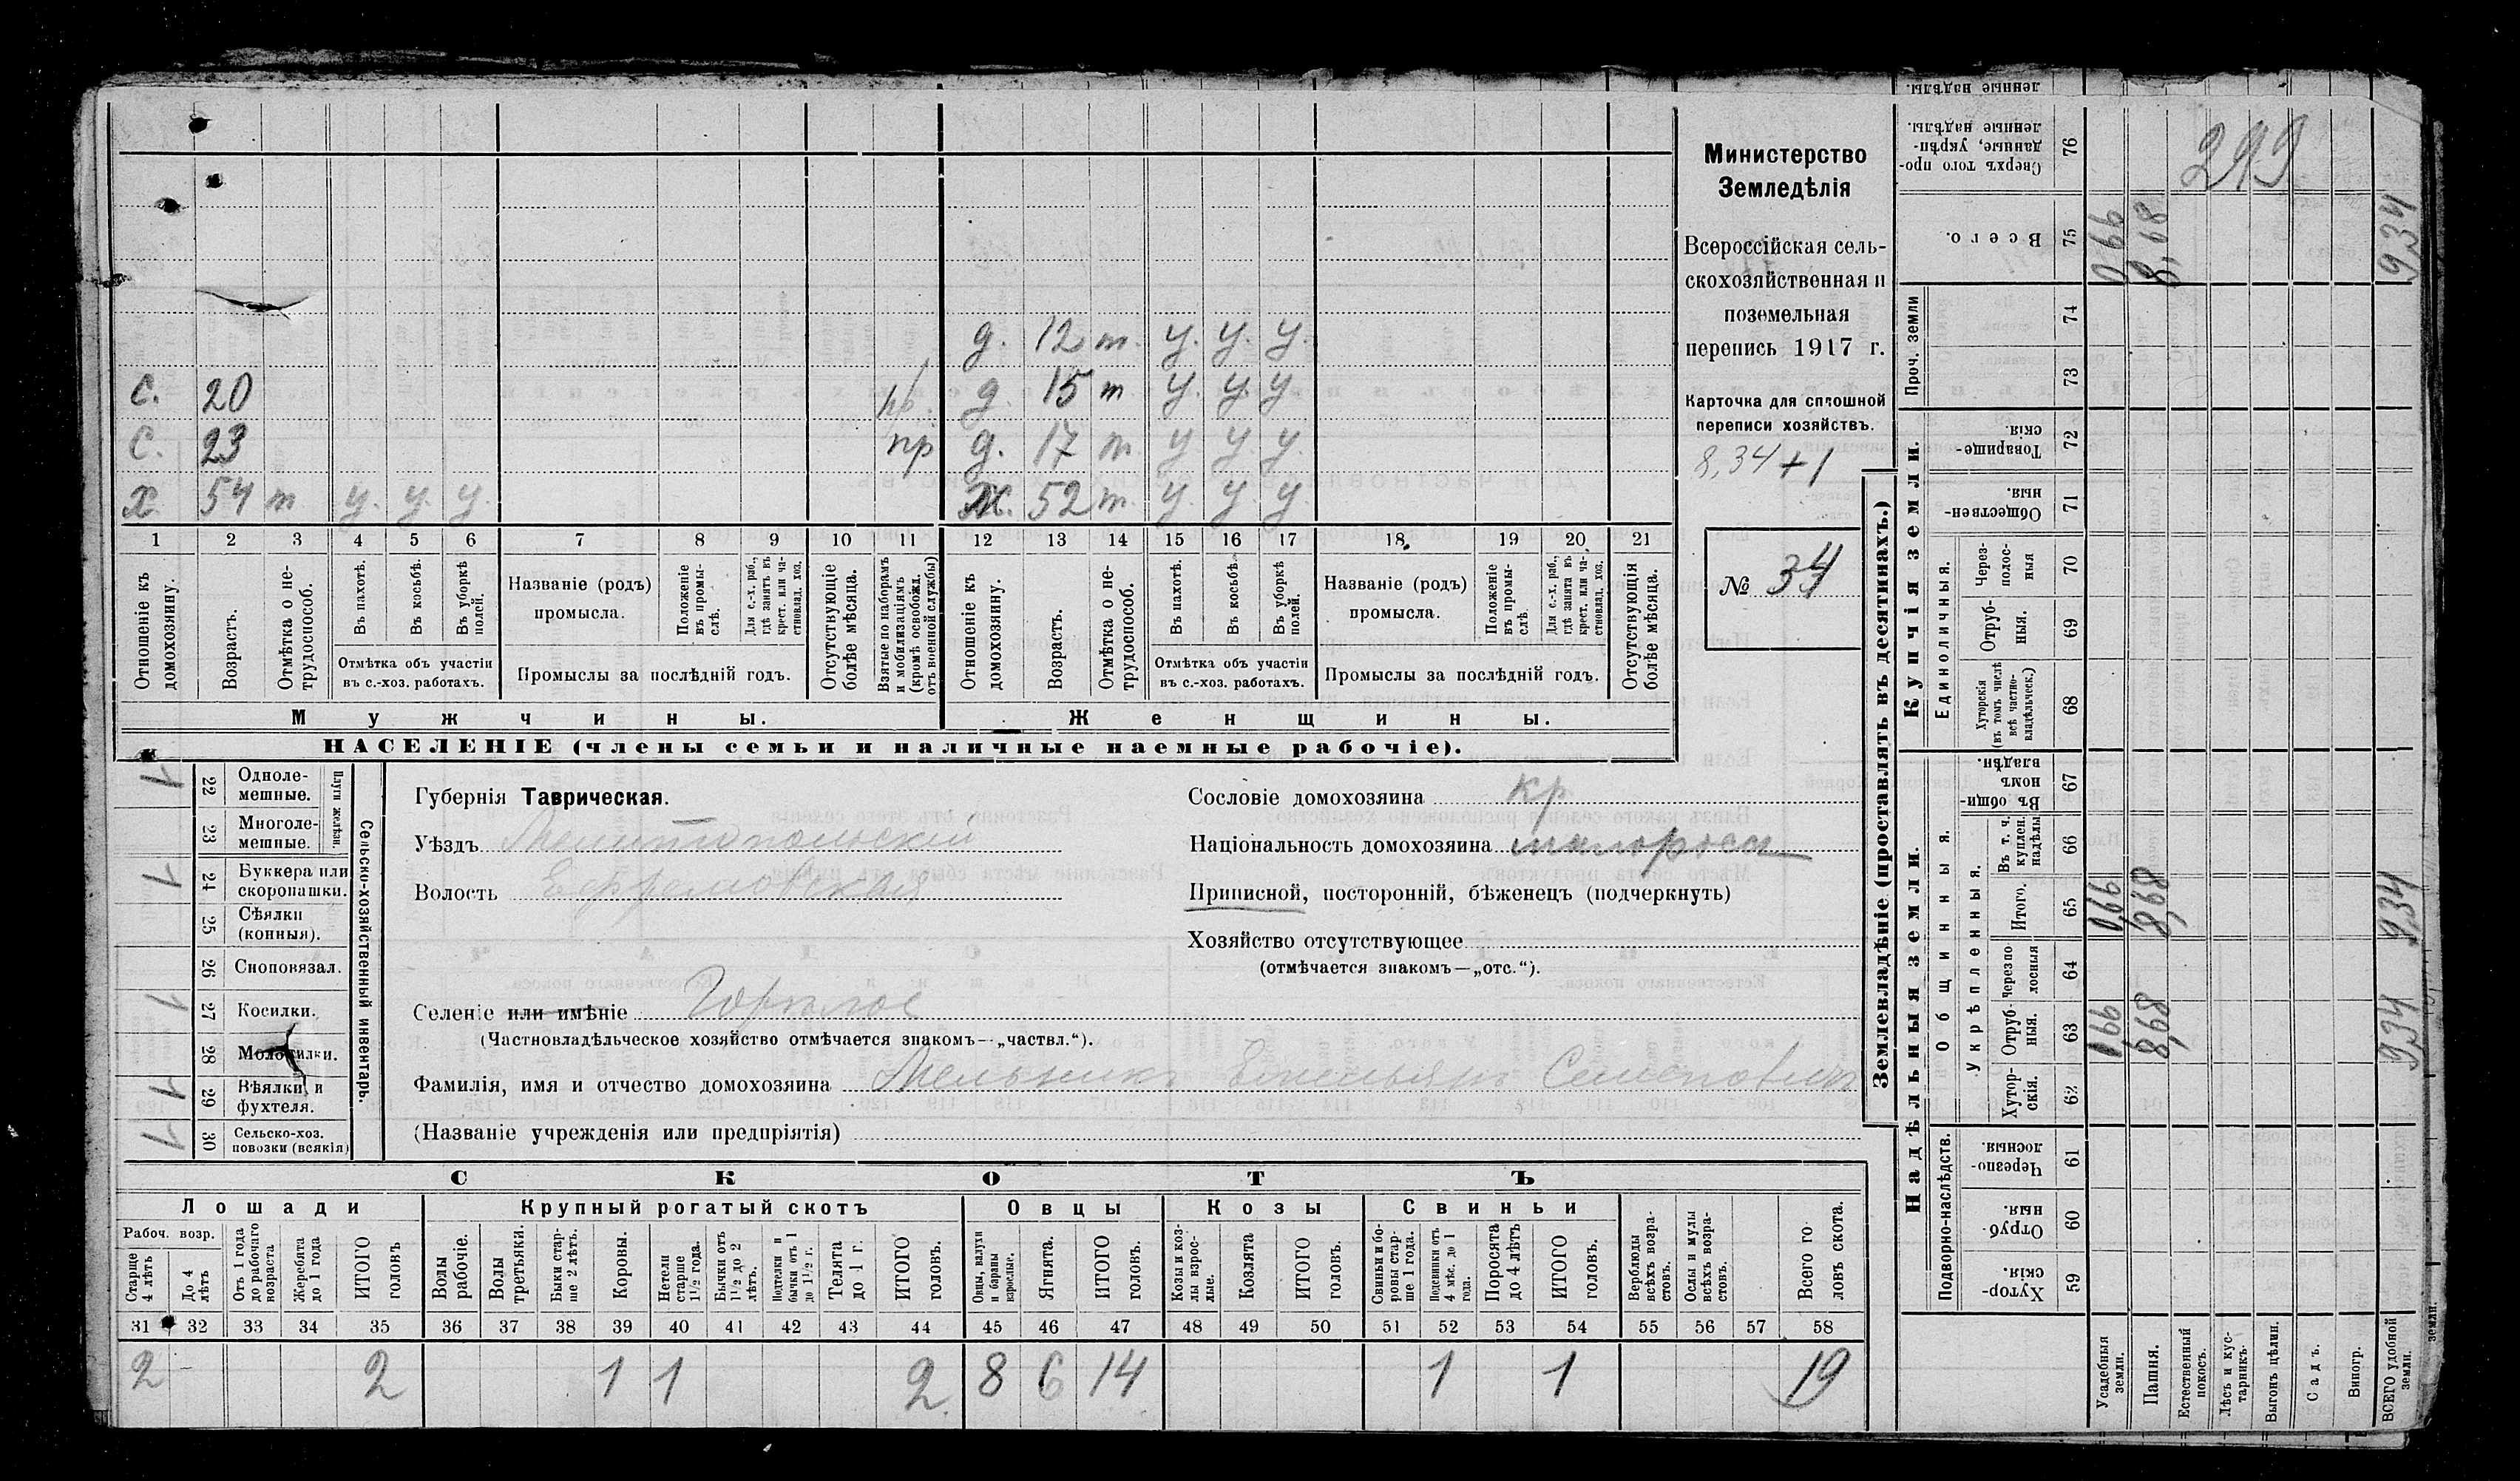 д. 12 т. у. у. у.
С. 20 пр. д. 15 т у. у. у.
С. 23 пр д. 17 т. у у. у.
х. 54 т у. у. у. Ж. 52 т. у. у. у.
1 2 3 4 5 6 7 8 9 10 11 12 13 14 15 16 17 18 19 20 21
Отношеніе къ домохозяину.
Возрастъ.
Отмѣтка о не-трудоспособ.
Въ пахотѣ.
Въ косьбѣ.
Въ уборкѣ полей.
Отмѣтка объ участіи въ с.-хоз. работахъ.
Названіе (родъ) промысла.
Положеніе въ промы-слѣ.
Для с.-х. раб., гдѣ занятъ въ крест. или ча-стновлад. хоз.
Промыслы за послѣдній годъ.
Отсутствующіе болѣе мѣсяца.
Взятые по наборамъ и мобилизаціямъ (кромѣ освобожд. отъ военной службы)
Отношеніе къ домохозяину.
Возрастъ.
Отмѣтка о не-трудоспособ.
Въ пахотѣ.
Въ косьбѣ.
Въ уборкѣ полей.
Отмѣтка объ участіи въ с.-хоз. работахъ.
Названіе (родъ) промысла.
Положеніе въ промы-слѣ.
Для с.-х. раб., гдѣ занята въ крест. или ча-стновлад. хоз.
Промыслы за послѣдній годъ.
Отсутствующія болѣе мѣсяца.
Мужчины. Женщины.
НАСЕЛЕНІЕ (члены семьи и наличные наемные рабочіе).
Министерство
Земледѣлія
Всероссійская сель-
скохозяйственная и
поземельная
перепись 1917 г.
Карточка для сплошной
переписи хозяйствъ.
8,34+1
№ 34
Сельско-хозяйственный инвентарь.
Плуги желѣзн.
22 Одноле-мешные. 1
23 Многоле-мешные.
24 Буккера или скоропашки. 1
25 Сѣялки (конныя).
26 Сноповязал.
27 Косилки. 1
28 Молотилки.
29 Вѣялки и фухтеля. 1
30 Сельско-хоз. повозки (всякія) 1
Губернія Таврическая.
Уѣздъ Мелитопольскій
Волость Ефремовская
Селеніе или имѣніе Горькое
(Частновладѣльческое хозяйство отмѣчается знакомъ—„частвл.“).
Фамилія, имя и отчество домохозяина Мельникъ Емельянъ Семеновичъ
(Названіе учрежденія или предпріятія)
Сословіе домохозяина кр
Національность домохозяина малороссъ
Приписной, посторонній, бѣженецъ (подчеркнуть)
Хозяйство отсутствующее
(отмѣчается знакомъ—„отс.“).
СКОТЪ
Лошади Крупный рогатый скотъ Овцы Козы Свиньи
Рабоч. возр.
Старше 4 лѣтъ
До 4 лѣтъ
Отъ 1 года до рабочаго возраста
Жеребята до 1 года
ИТОГО головъ
Волы рабочіе.
Волы третьяки.
Быки стар-ше 2 лѣтъ.
Коровы.
Нетели старше 1½ года.
Бычки отъ 1½ до 2 лѣтъ.
Подтелки и бычки отъ 1 до 1½ г.
Телята до 1 г.
ИТОГО головъ.
Овцы, валухи и бараны взрослые.
Ягнята.
ИТОГО головъ.
Козы и коз-лы взрос-лые.
Козлята
ИТОГО головъ.
Свиньи и бо-ровы стар-ше 1 года.
Подсвинки отъ 4 мѣс. до 1 года.
Поросята до 4 лѣтъ
ИТОГО головъ.
Верблюды всѣхъ возра-стовъ.
Ослы и мулы всѣхъ возра-стовъ.
Всего го-ловъ скота.
31 32 33 34 35 36 37 38 39 40 41 42 43 44 45 46 47 48 49 50 51 52 53 54 55 56 57 58
2 – 2 1 1 2. 8 6 14 1 1 19
Землевладѣніе (проставлять въ десятинахъ.)
Надѣльныя земли. Купчія земли.
Подворно-наслѣдств.
Общинныя.
Укрѣпленныя.
Единоличныя.
Проч. земли
Хутор-скія. 59
Отруб-ныя. 60
Черезпо-лосныя. 61
Хутор-скія. 62
Отруб-ныя. 63
Черезпо-лосныя 64
Итого. 65
Въ т. ч. куплен. надѣлы 66
Въ общин-номъ владѣн. 67
Хуторскія (въ томъ числѣ всѣ частно-владѣльческ.) 68
Отруб-ныя. 69
Через-полос-ныя 70
Обществен-ныя. 71
Товарище-скія. 72
73
74
Всего. 75
Сверхъ того про-данные, укрѣп-ленные надѣлы. 76
ленные надѣлы.
299
Усадебныя земли. 0,66 0,66
Пашня. 8,68 8,68 8,68
Естественный покосъ.
Лѣсъ и кус-тарникъ.
Выгонъ цѣлин.
Садъ.
Виногр.
ВСЕГО удобной земли. 9,34 9,34 9,34
земли.